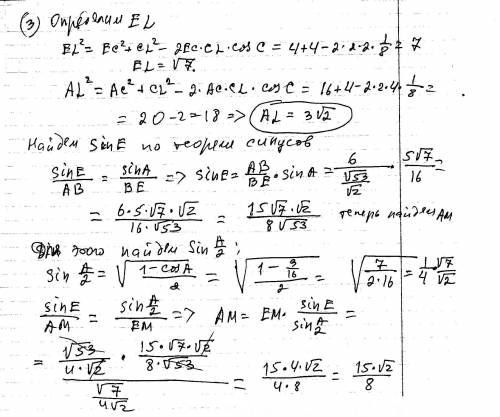 (3) Определим EL
EL² = EC² + CL² - 2EC·CL·cos C = 4+4-2·2·2·1/8 = 7
EL = √7.
AL² = AC² + CL² - 2·AC·CL·cos C = 16+4-2·2·4·1/8 =
= 20-2 = 18 => AL = 3√2
Найдем sin E по теореме синусов
sinE/AB = sinA/BE => sinE = AB/BE · sinA = 6/(√53/√2) · 5√7/16 =
= 6·5·√7·√2/16·√53 = 15√7·√2/8√53 теперь найдем AM
Для этого найдем Sin A/2:
sin A/2 = √((1-cosA)/2) = √((1-9/16)/2) = √(7/(2·16)) = 1/4 √7/√2
sinE/AM = sin A/2/EM => AM = EM · sinE/sin A/2 =
= (√53/4·√2 · 15·√7·√2/8·√53)/(√7/4√2) = 15·4·√2/4·8 = 15·√2/8